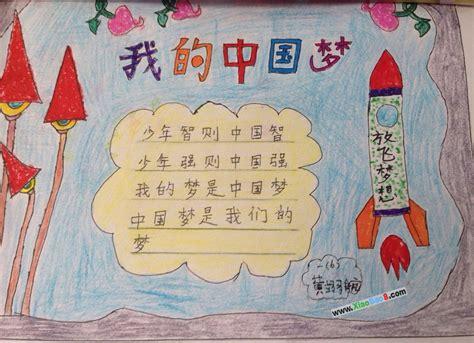 我的中国梦
少年智则中国智
少年强则中国强
我的梦是中国梦
中国梦是我们的
梦
放飞梦想
(6)
www.XiaoBao8.com